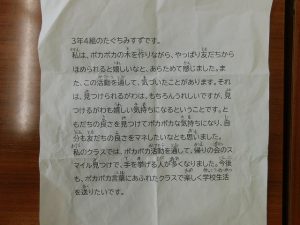 3年4組のたぐちみすずです。
私は、ポカポカの木を作りながら、やっぱり友だちから
ほめられると嬉しいなと、あらためて感じました。ま
た、この活動を通して、気づいたことがあります。それ
は、見つけられるがわは、もちろんうれしいですが、見
つけるがわも嬉しい気持ちになるということです。と
もだちの良さを見つけてポカポカな気持ちになり、自
分も友だちの良さをマネしたいなとも思いました。
私のクラスでは、ポカポカ活動を通して、帰りの会のス
マイル見つけで、手を挙げる人が多くなりました。今後
も、ポカポカ言葉にあふれたクラスで楽しく学校生活
を送りたいです。